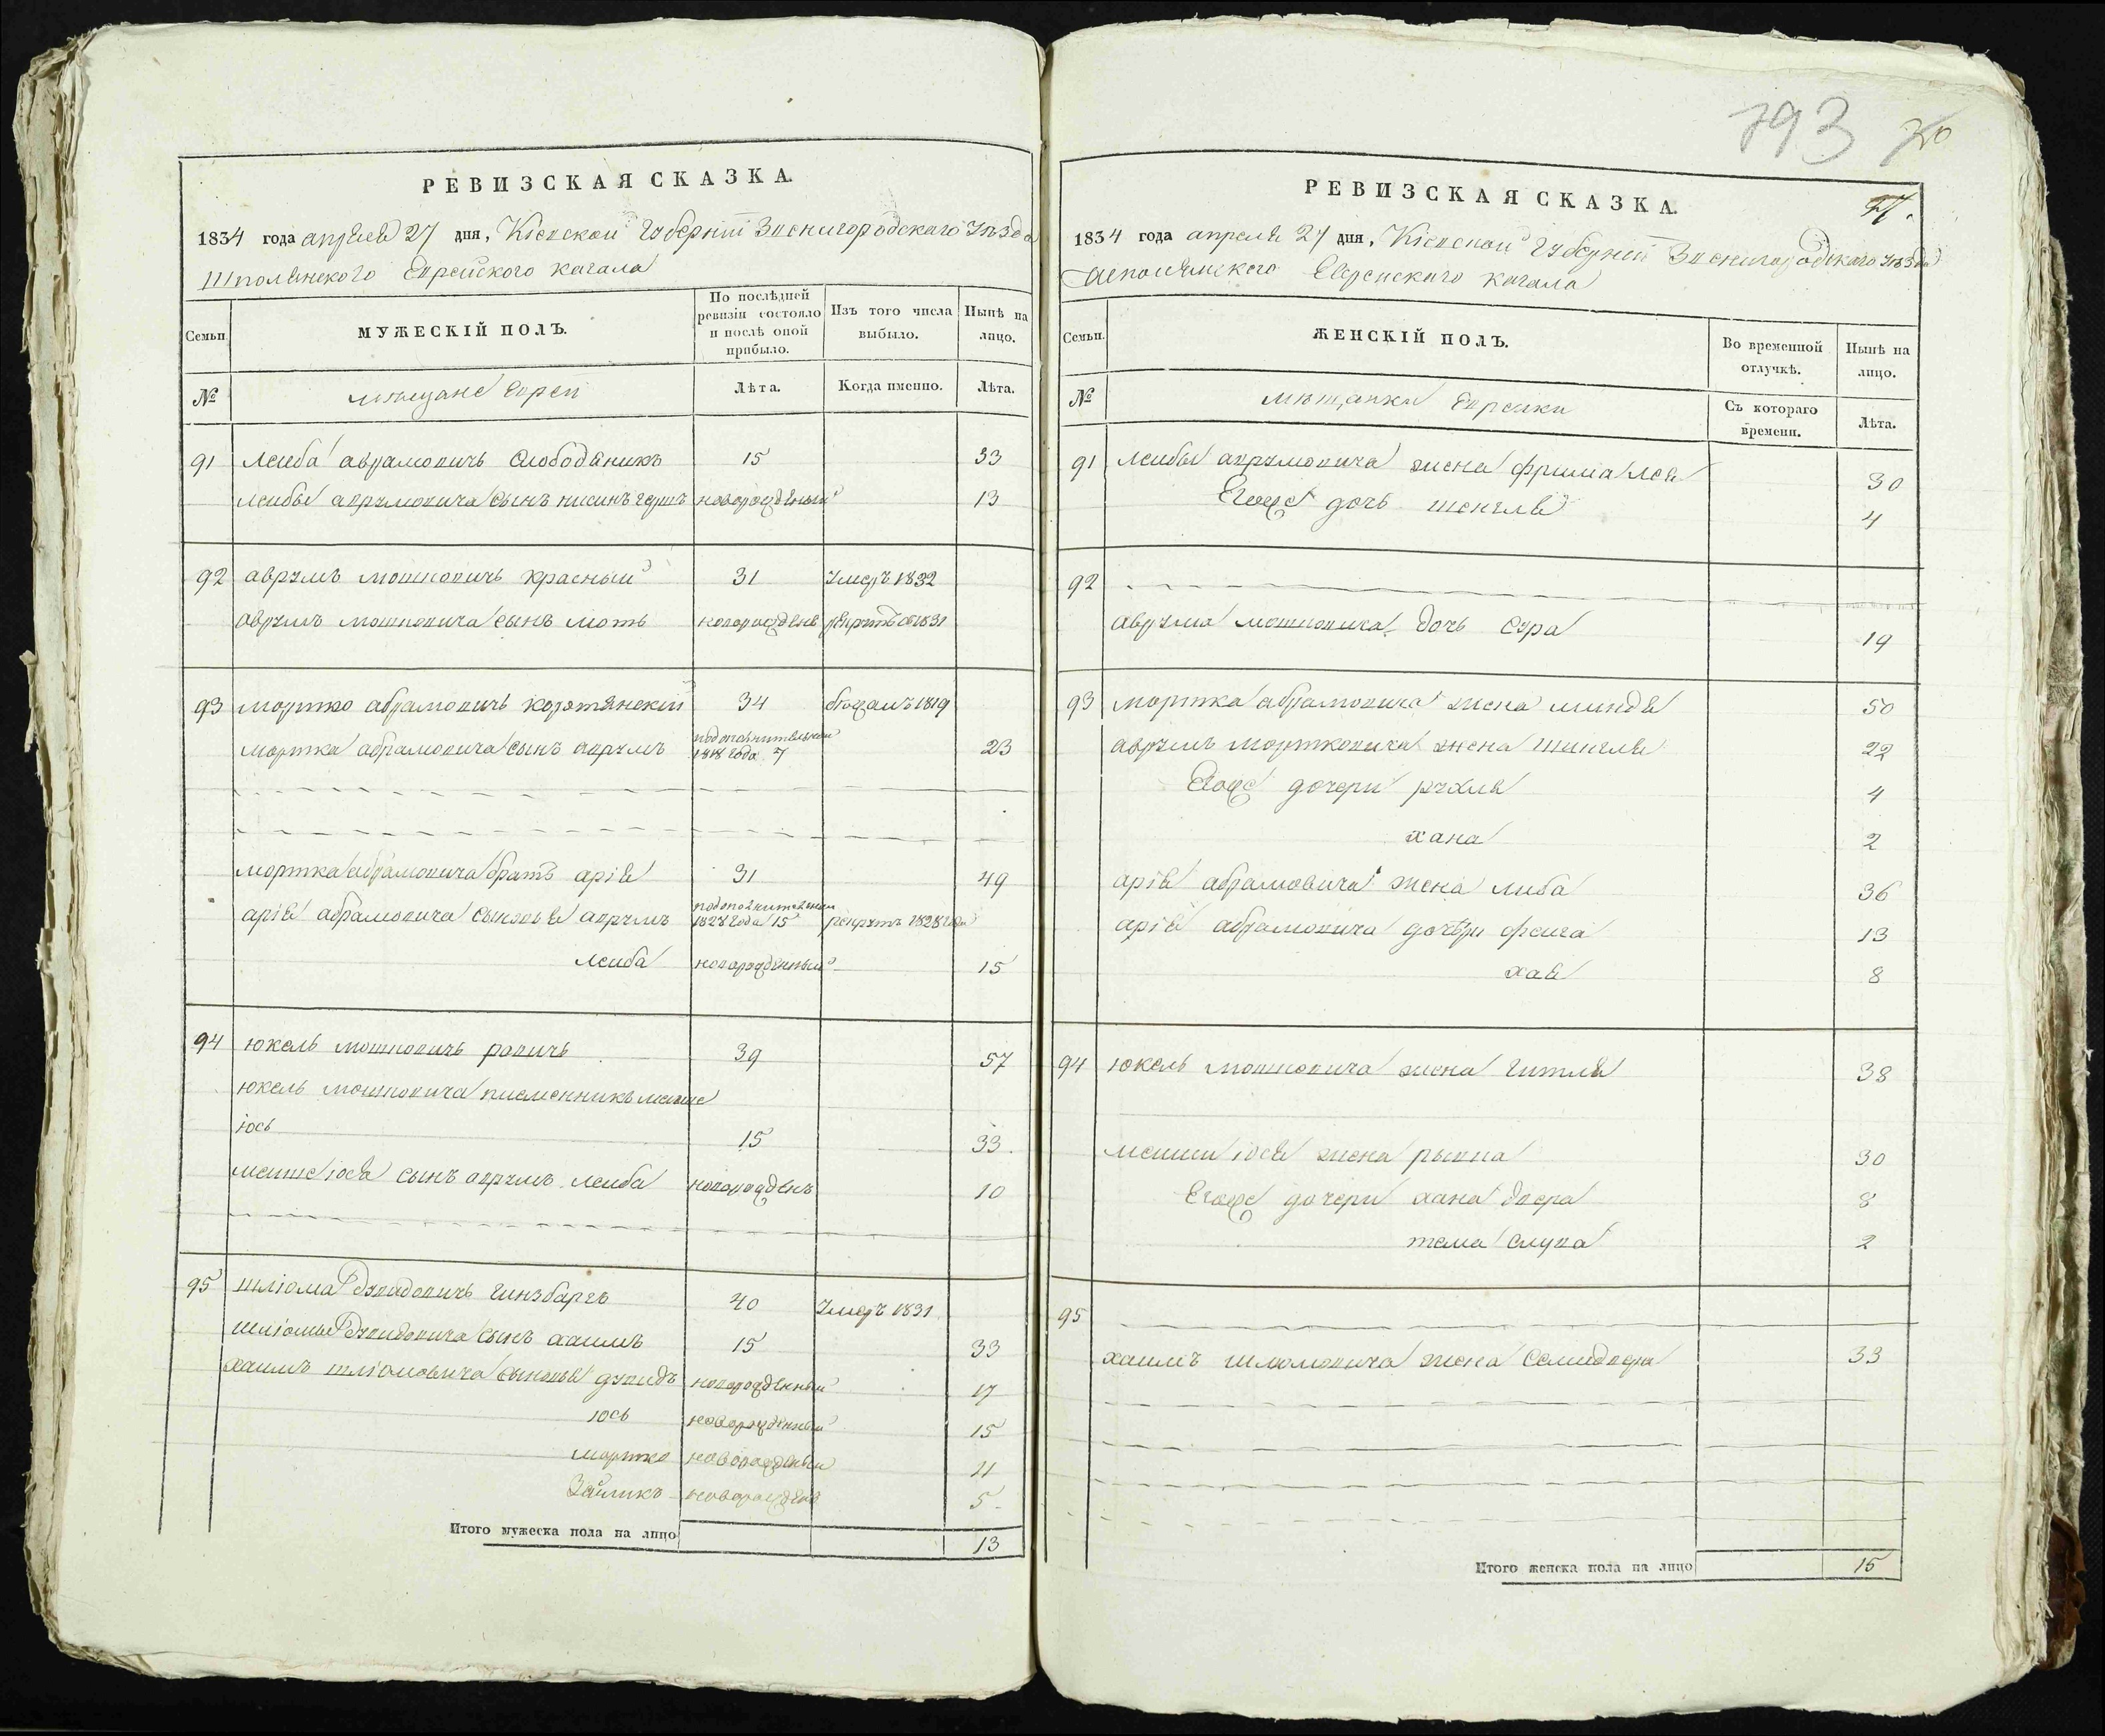 РЕВИЗСКАЯ СКАЗКА.
1834 года апреля 27 дня, Кіевской Губерніи Звенигородского Уезда
Шполянского Еврейского кагала
Семьи.
МУЖЕСКІЙ ПОЛЪ.
По послѣдней ревизіи состояло и послѣ оной прибыло.
Изъ того числа выбыло.
Нынѣ на лицо.
№
мещане Евреи
Лѣта.
Когда именно.
Лѣта.
91 Лейба аврумовичъ Слободяникъ 15 33
Лейбы аврумовича сынъ нисинъ герш новорожденый 13
92 аврумъ мошковичъ красный 31 Умеръ 1832
аврумъ мошковича сынъ моть новорожденъ рекрутъ 1831
93 мортко абрамовичъ 34 1819
мортка абрамовича сынъ аврумъ подополнительной 1818 года 7 23
мортка абрамовича братъ арія 31 49
арія абрамовича сыновья аврумъ подополнительной 1828 года 15 рекрутъ 1828 года
лейба новорожденный 15
94 юкель мошковичъ равичъ 39 57
юкель мошковича племенникъ мейше
іось 15 33.
мейше іося сынъ аврумъ лейба новорожденъ 10
95 шліома дувидовичъ гинзбаргъ 40 Умеръ 1831
шліомы дувидовича сынъ хаимъ 15 33
хаимъ шліомовича сыновья дувидъ новорожденный 17
юсь новорожденный 15
мортко новорожденый 11
Зейликъ новорожденъ 5
Итого мужеска пола на лицо 13
793
РЕВИЗСКАЯ СКАЗКА.
1834 года апреля 27 дня, Кіевской Губерніи Звенигородского Уезда
Шполянского Еврейского кагала
Семьи.
ЖЕНСКІЙ ПОЛЪ.
Во временной отлучкѣ.
Нынѣ на лицо.
№
мещанки Еврейки
Съ котораго времени.
Лѣта.
91 Лейбы аврумовича жена фрима лея 30
Егоже дочь шенгля 4
92
аврума мошковича дочь сура 19
93 мортка абрамовича жена миндя 50
аврумъ мортковича жена шингля 22
Егоже дочери рухля 4
хана 2
арія абрамовича жена либа 36
арія абрамовича дочери фейга 13
хая 8
94 юкель мошковича жена гитля 38
мейши іося жена рывка 30
Егоже дочери хана двера 8
тема слува 2
95
хаимъ шліомовича жена 33
Итого женска пола на лицо 15